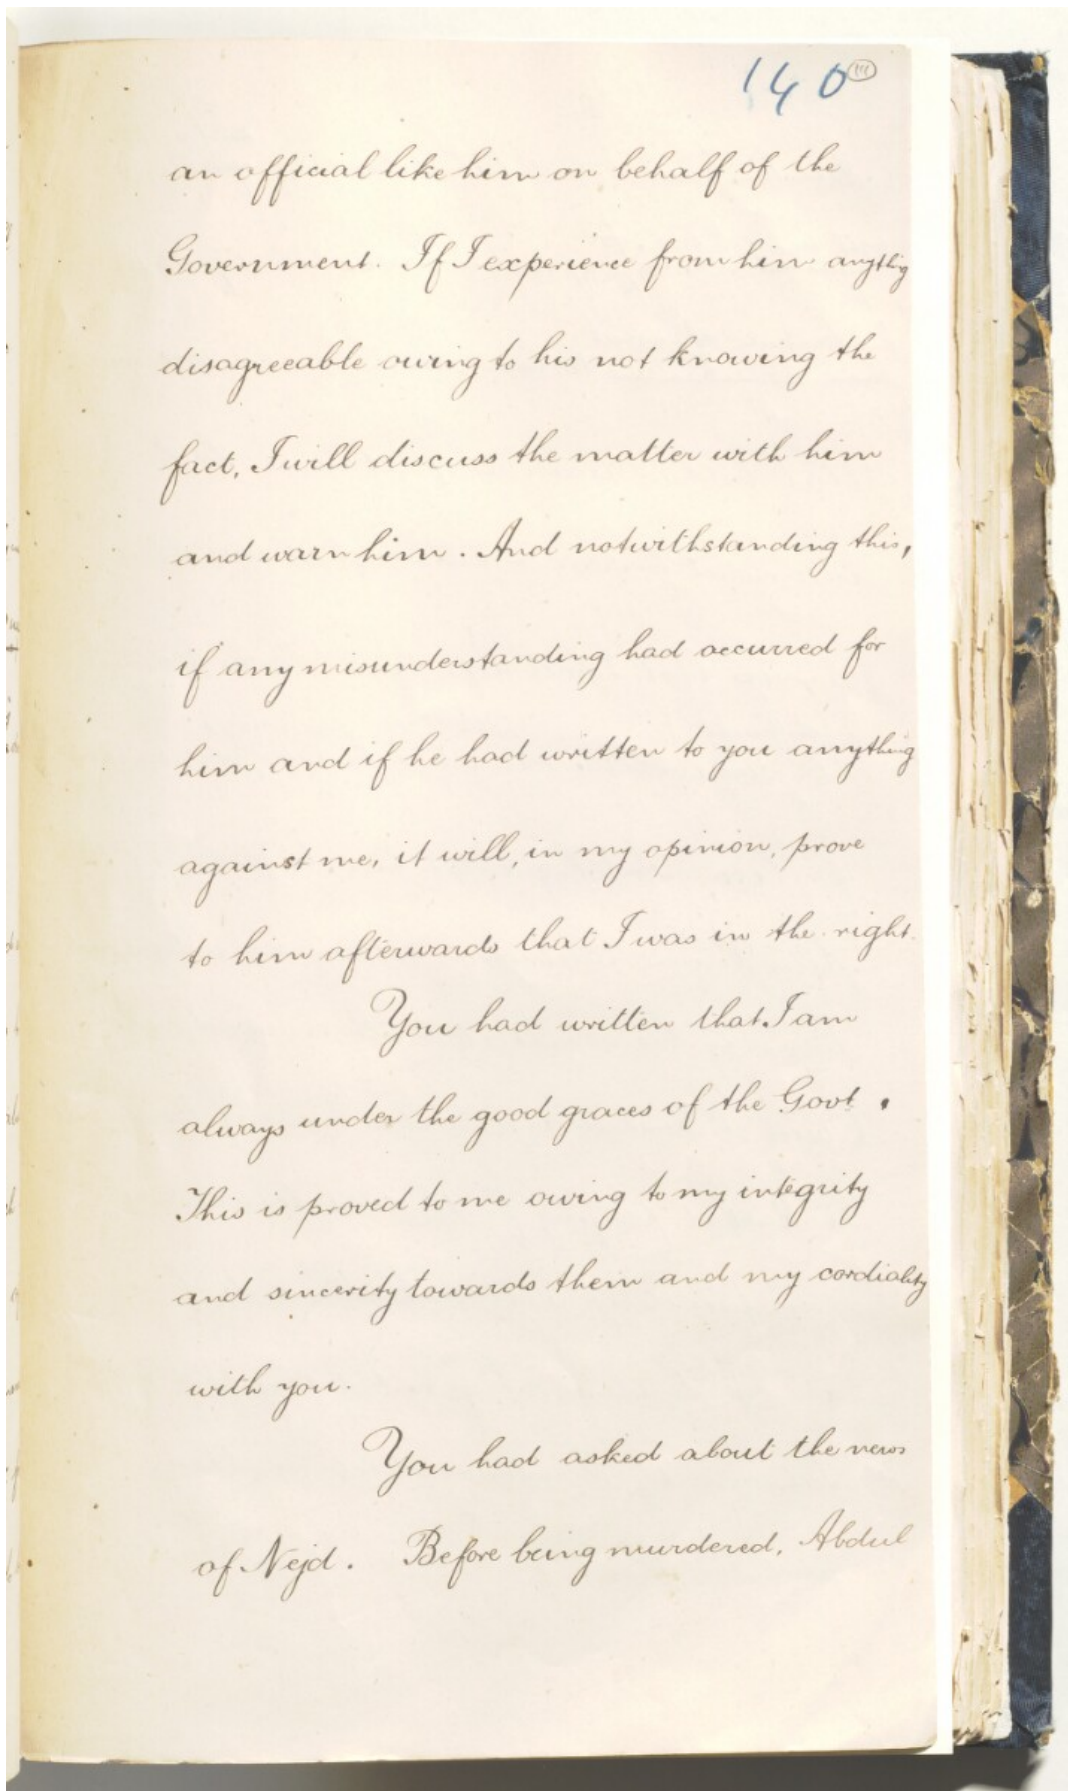 140
an official like him on behalf of the
Government. If I experience from him anything
disagreeable owing to his not knowing the
fact, I will discuss the matter with him
and warn him. And notwithstanding this,
if any misunderstanding had occurred for
him and if he had written to you anything
against me, it will, in my opinion, prove
to him afterwards that I was in the right.
You had written that I am
always under the good graces of the Govt.
This is proved to me owing to my integrity
and sincerity towards them and my cordiality
with you.
You had asked about the news
of Nejd. Before being murdered, Abdul